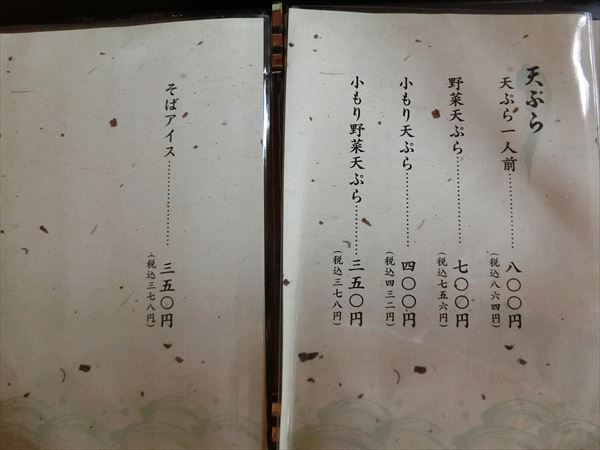 天ぷら
天ぷら一人前…………八〇〇円
（税込八六四円）
野菜天ぷら…………七〇〇円
（税込七五六円）
小もり天ぷら…………四〇〇円
（税込四三二円）
小もり野菜天ぷら…………三五〇円
（税込三七八円）
そばアイス…………三五〇円
（税込三七八円）